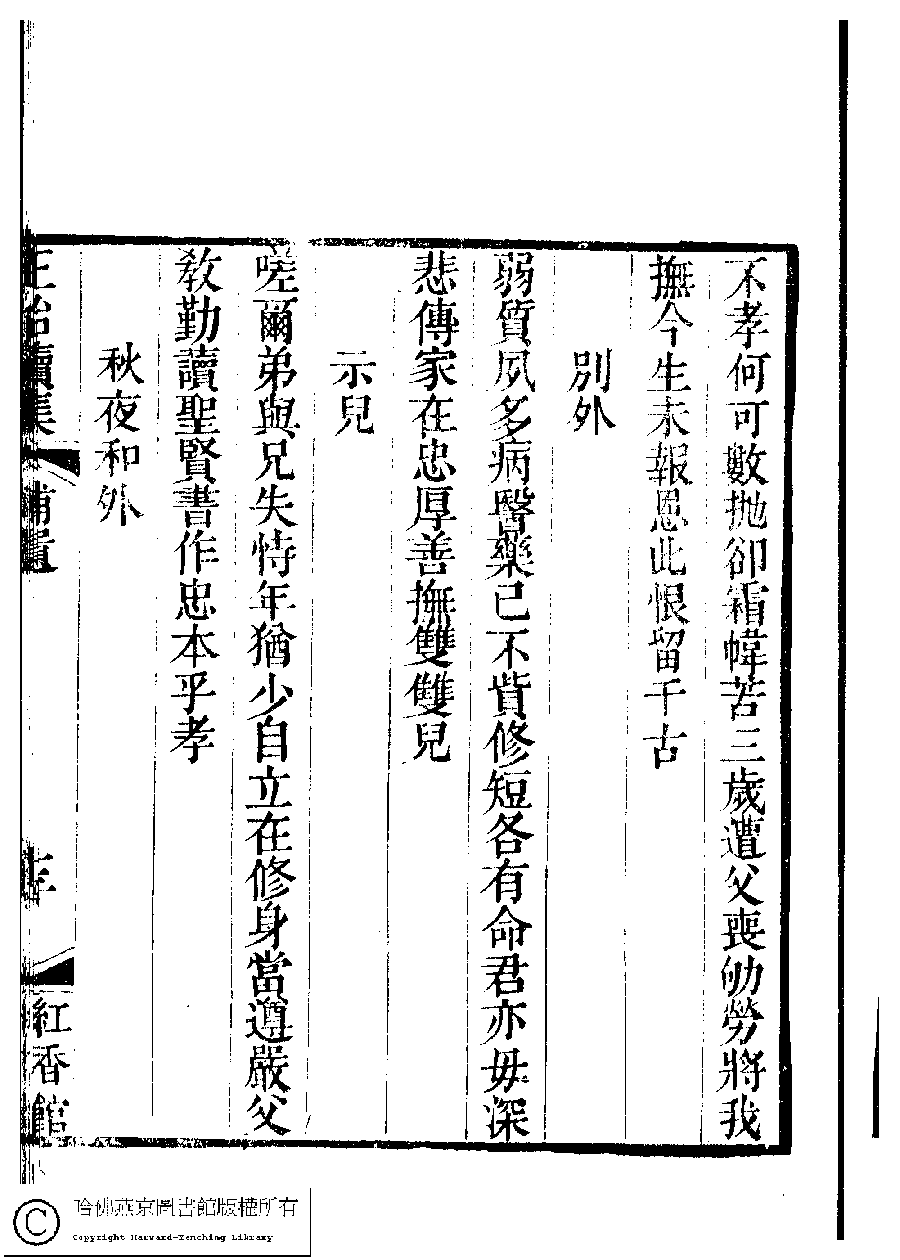 不孝何可數抛卻霜幃苦三歲遭父喪劬勞將我
撫今生未報恩此恨留千古
別外
弱質夙多病醫藥已不貲修短各有命君亦毋深
悲傳家在忠厚善撫雙雙兒
示兒
嗟爾弟與兄失恃年猶少自立在修身當遵嚴父
敎勤讀聖賢書作忠本乎孝
秋夜和外
續集 補遺
紅香館
哈佛燕京圖書館版權所有
Copyright Harvard-Yenching Library